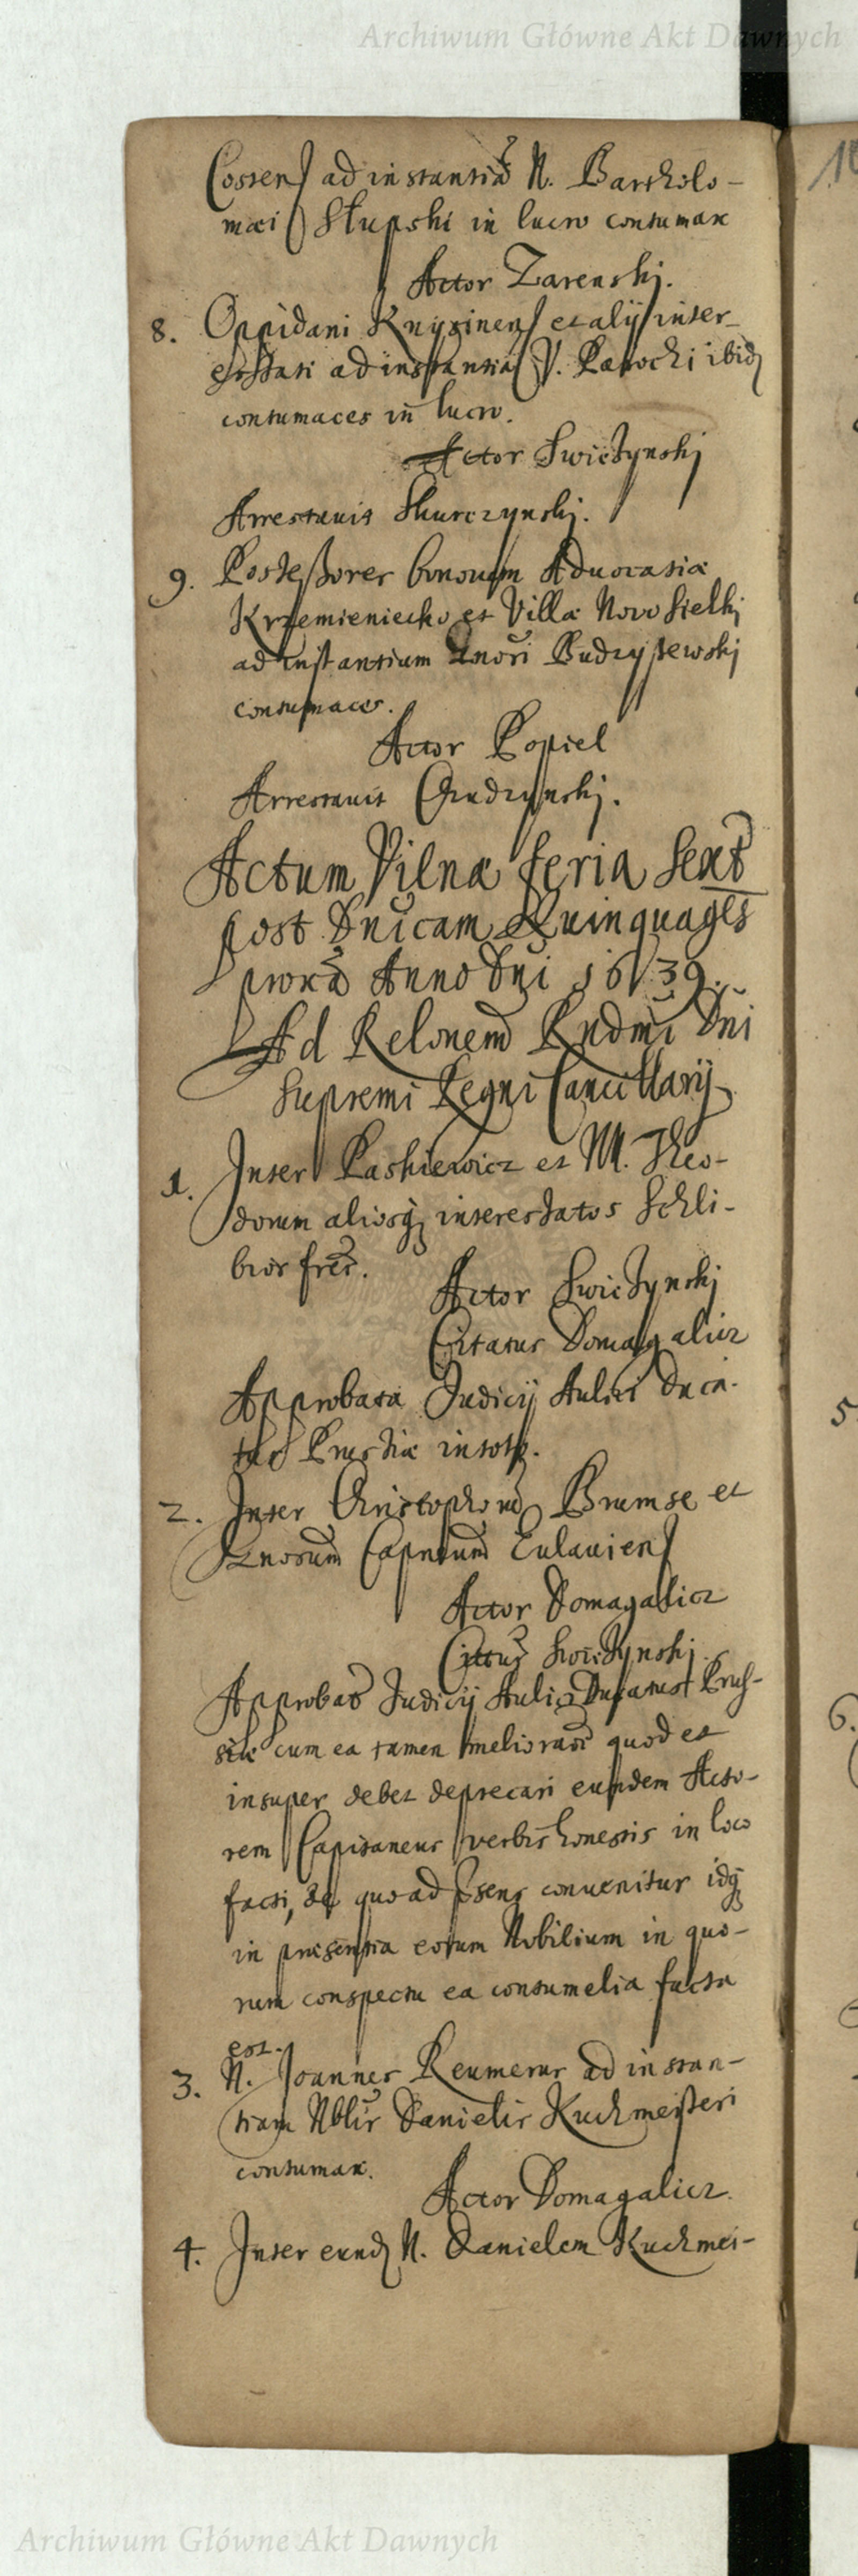 Archiwum Główne Akt Dawnych
Cossens ad instantia N. Bartholo-
mæi Słupski in lucro contumax
Actor Zarenski.
8. Oppidani Knyszinens et alij inter-
essati ad instantia V. Parochi ibid
contumaces in lucro.
Actor Swietynski
Arrestavit Skurczynski.
9. Possessores bonorum Advocatiæ
Krzemieniecko et Villæ Novosielki
ad instantium Gnosi Budzyszewski
contumaces.
Actor Popiel
Arrestavit Grudzynski.
Actum Vilnæ feria sext
post Dnicam Quinquages
proxa Anno Dni 1639.
Ad Relonem Rndmi Dni
Supremi Regni Cancellarij
1. Inter Paskiewicz et M. Theo-
dorum aliosq interessatos Schli-
bior fres.
Actor Swietynski
Citatus Domagalicz
Approbata Judicij Aulici Duca-
tus Prussiæ in toto.
2. Inter Christophorum Brumse et
Gnosum Capneum Eulaviens
Actor Domagalicz
Cittus Swietynski
Approbat Judicij Aulici Ducatus Prus-
siæ cum ea tamen meliorae quod et
insuper debet deprecari eundem Acto-
rem Capitaneus verbis honestis in loco
facti, de quo ad psens convenitur idq
in præsentia eorum Nobilium in quo-
rum conspectu ea contumelia facta
est.
3. N. Joannes Reumerus ad instan-
tiam Nblis Danielis Kuchmeisteri
contumax.
Actor Domagalicz.
4. Inter eund N. Danielem Kuchmei-
5.
6.
Archiwum Główne Akt Dawnych